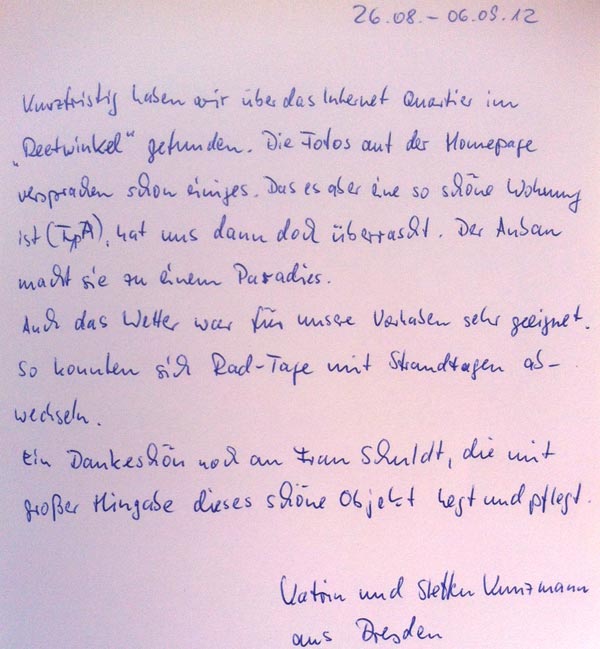 26.08. – 06.09.12
Kurzfristig haben wir über das Internet Quartier im
„Reetwinkel" gefunden. Die Fotos auf der Homepage
versprachen schon einiges. Das es aber eine so schöne Wohnung
ist (Typ A), hat uns dann doch überrascht. Der Anbau
macht sie zu einem Paradies.
Auch das Wetter war für unsere Vorhaben sehr geeignet.
So konnten sich Rad-Tage mit Strandtagen ab-
wechseln.
Ein Dankeschön noch an Frau Schuldt, die mit
großer Hingabe dieses schöne Objekt hegt und pflegt.
Katrin und Steffen Kunzmann
aus Dresden